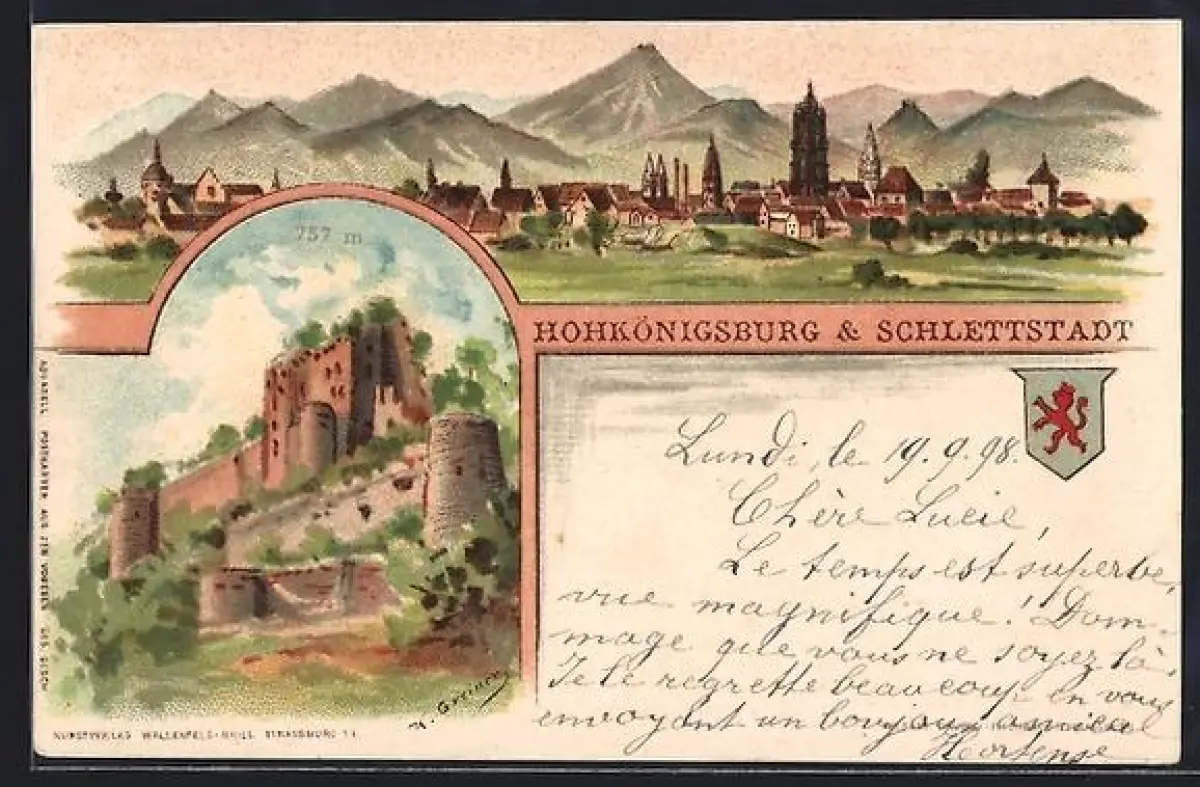 757 m
HOHKÖNIGSBURG & SCHLETTSTADT
Lundi, le 19.9.98.
Chère Lucie,
Le temps est superbe,
vue magnifique! Dom-
mage que vous ne soyez là,
Je le regrette beaucoup en vous
envoyant un bonjour amical
Hortense
AQUARELL POSTKARTEN AUS DEN VOGESEN GES. GESCH
KUNSTVERLAG WALLENFELS-BRILL STRASSBURG